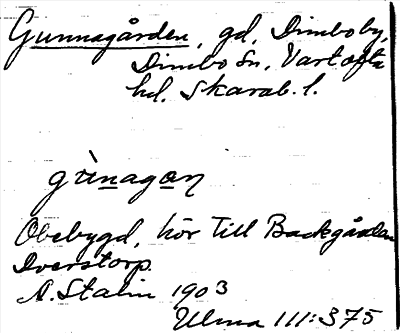 Gunnagården, gd, Dimboby,
Dimbo sn, Vartofta
hd. Skarab. l.
gùnagan
Obebygd, hör till Backgården
Dverstorp.
A. Stalin 1903
Ulma 111:375